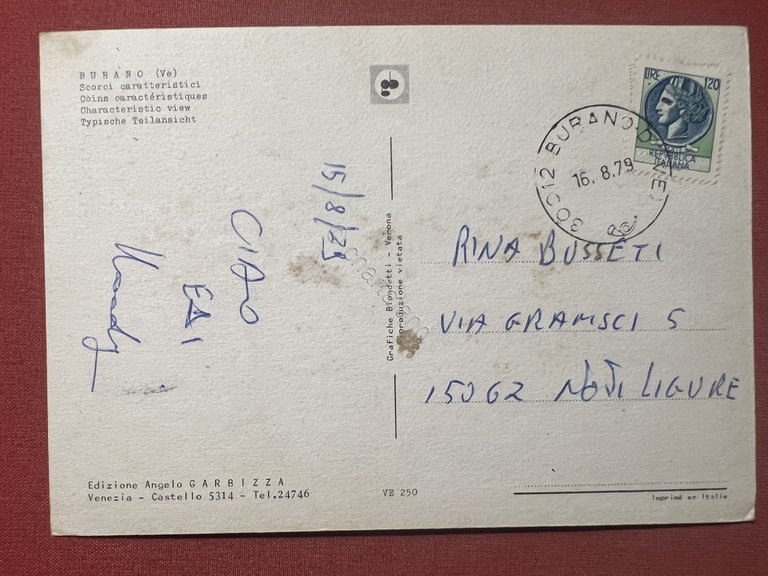 BURANO (Ve)
Scorci caratteristici
Coins caractéristiques
Characteristic view
Typische Teilansicht
15/8/79
CIAO
EDI
Grafiche Biondetti - Verona
riproduzione vietata
LIRE 120
REPVBBLICA
ITALIANA
30012 BURANO
16.8.79
RINA BUSSETI
VIA GRAMSCI 5
15062 NOVI LIGURE
Edizione Angelo GARBIZZA
Venezia - Castello 5314 - Tel.24746
VE 250
Imprimé en Italie